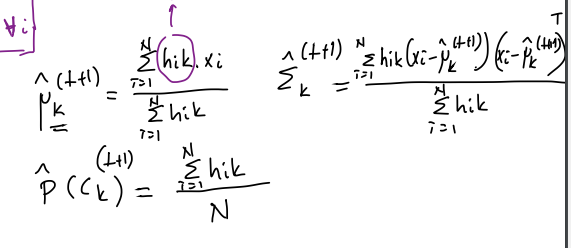 ∀i
μ̂_k^(t+1) = Σ_{i=1}^N hik · xi / Σ_{i=1}^N hik
Σ̂_k^(t+1) = Σ_{i=1}^N hik (xi - μ̂_k^(t+1)) (xi - μ̂_k^(t+1))^T / Σ_{i=1}^N hik
P̂(Ck)^(t+1) = Σ_{i=1}^N hik / N